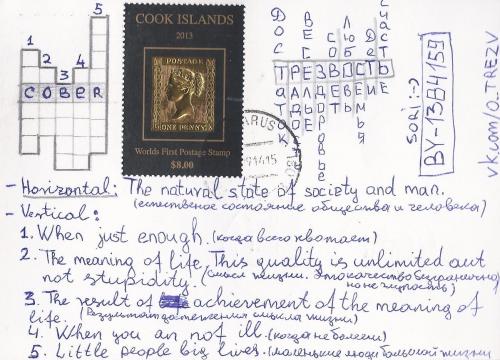 5
1
2
3
4
COBER
COOK ISLANDS
2013
POSTAGE
ONE PENNY
Worlds First Postage Stamp
$8.00
ARUS
ТРЕЗВОСТЬ
sori :-)
BY-1384159
vk.com/O_TREZV
- Horizontal: The natural state of society and man.
(естественое состояние общества и человека)
- Vertical:
1. When just enough. (когда всего хватает)
2. The meaning of life. This quality is unlimited out
not stupidity. (смысл жизни. Это качество безгранично,
но не глупость)
3. The result of achievement of the meaning of
life. (Результат достижения смысла жизни)
4. When you an not ill. (когда не болеешь)
5. Little people big lives. (маленькие люди большой жизни)